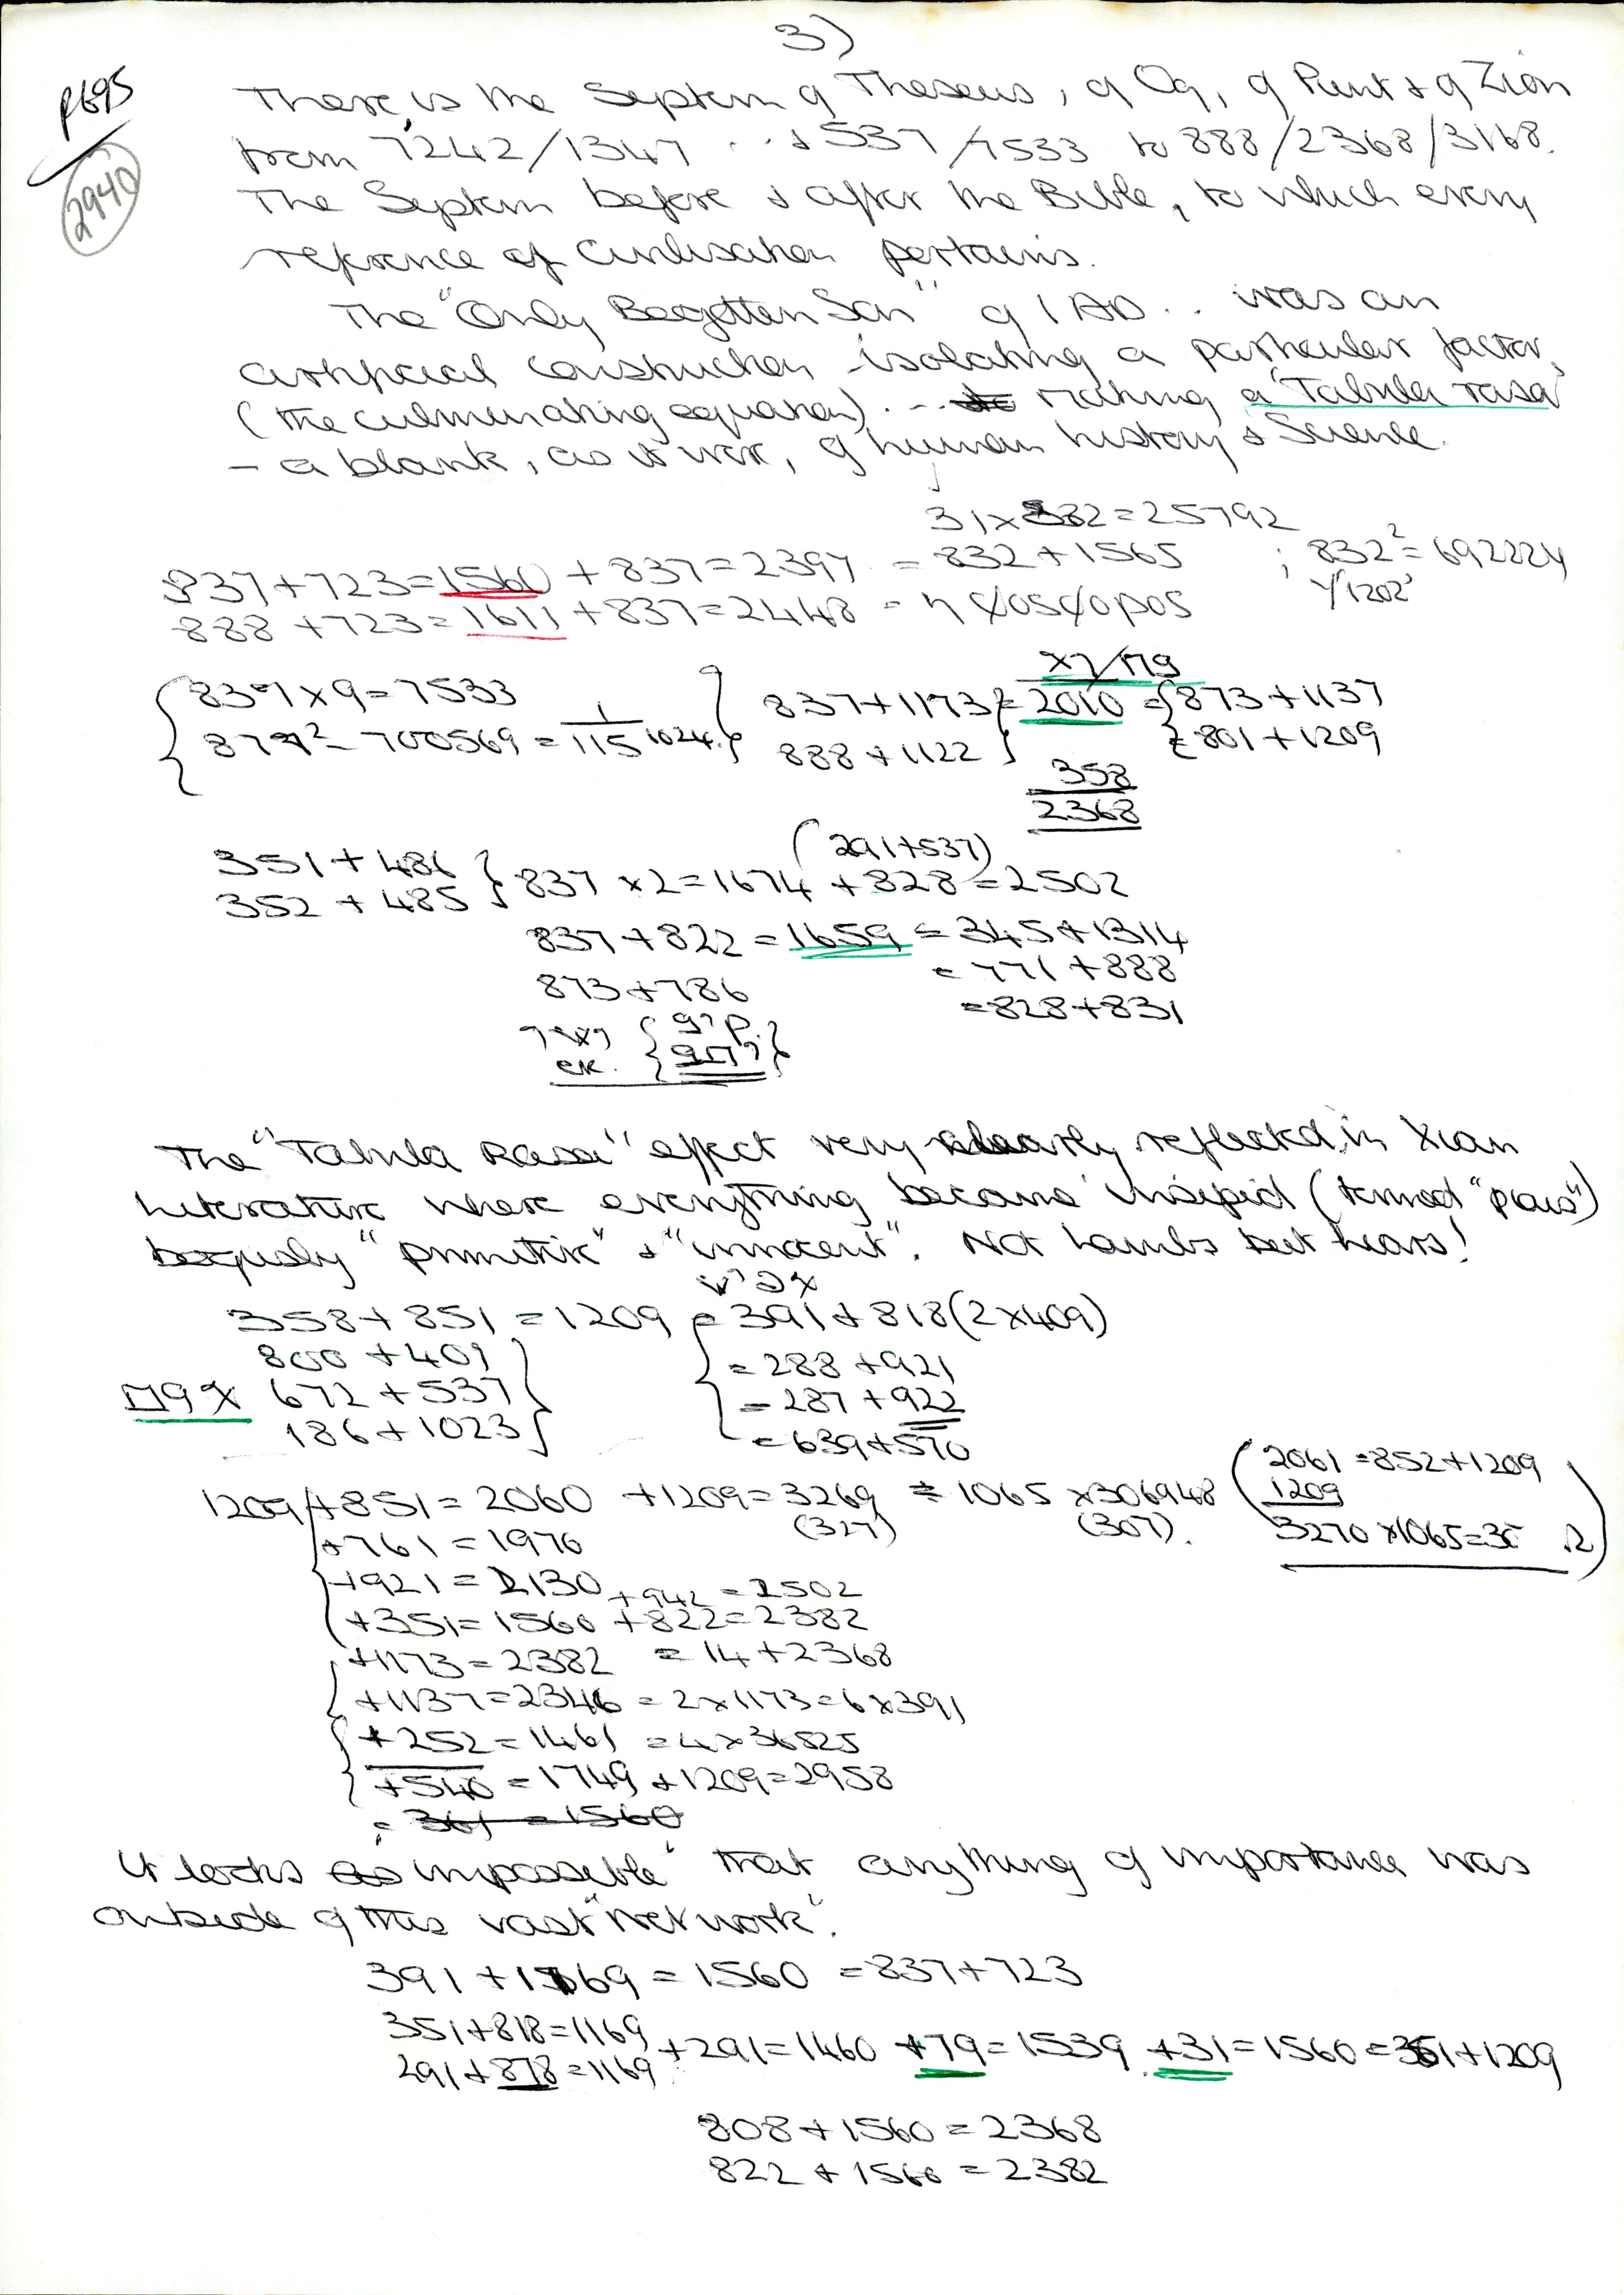 3)
p695
2940
There is the System of Theseus, of Og, of Punt & of Zion
from 7242/1347 .. & 537/7533 to 888/2368/3168.
The System before & after the Bible, to which every
reference of Civilisation pertains.
The "Only Begotten Son" of 1 AD .. was an
artificial construction isolating a particular factor,
(the culminating equation). .. making a "Tabula rasa"
- a blank, as it were, of human history & Science.
31 x 832 = 25792
837 + 723 = 1560 + 837 = 2397 = 832 + 1565 ; 832² = 692224
888 + 723 = 1611 + 837 = 2448 =
"1202"
837 x 9 = 7533
837² = 700569 = 1/115 1024.
837 + 1173 = 2010 = 873 + 1137
888 + 1122 = 801 + 1209
358
2368
351 + 486
352 + 485
(291+537)
837 x 2 = 1674 + 828 = 2502
837 + 822 = 1659 = 345 + 1314
= 771 + 888
873 + 786
= 828 + 831
The "Tabula Rasa" effect very clearly reflected in Xian
Literature where everything became insipid (termed "pious")
"primitive" & "innocent". Not Lambs but liars!
358 + 851 = 1209 = 391 + 818 (2x409)
800 + 409
= 288 + 921
672 + 537
= 287 + 922
186 + 1023
= 639 + 570
1209 + 851 = 2060 + 1209 = 3269 = 1065 x 306948
(327) (307).
2061 = 852 + 1209
1209
3270 x 1065 = 3
+ 761 = 1970
+ 921 = 2130
+ 942 = 2502
+ 351 = 1560 + 822 = 2382
+ 1173 = 2382 = 14 + 2368
+ 1137 = 2346 = 2 x 1173 = 6 x 391
+ 252 = 1461 = 4 x 36525
+ 540 = 1749 + 1209 = 2958
= 361 = 1560
It looks as impossible that anything of importance was
outside of this vast "Network".
391 + 1169 = 1560 = 837 + 723
351 + 818 = 1169
291 + 878 = 1169
+ 291 = 1460 + 79 = 1539 + 31 = 1560 = 351 + 1209
808 + 1560 = 2368
822 + 1560 = 2382